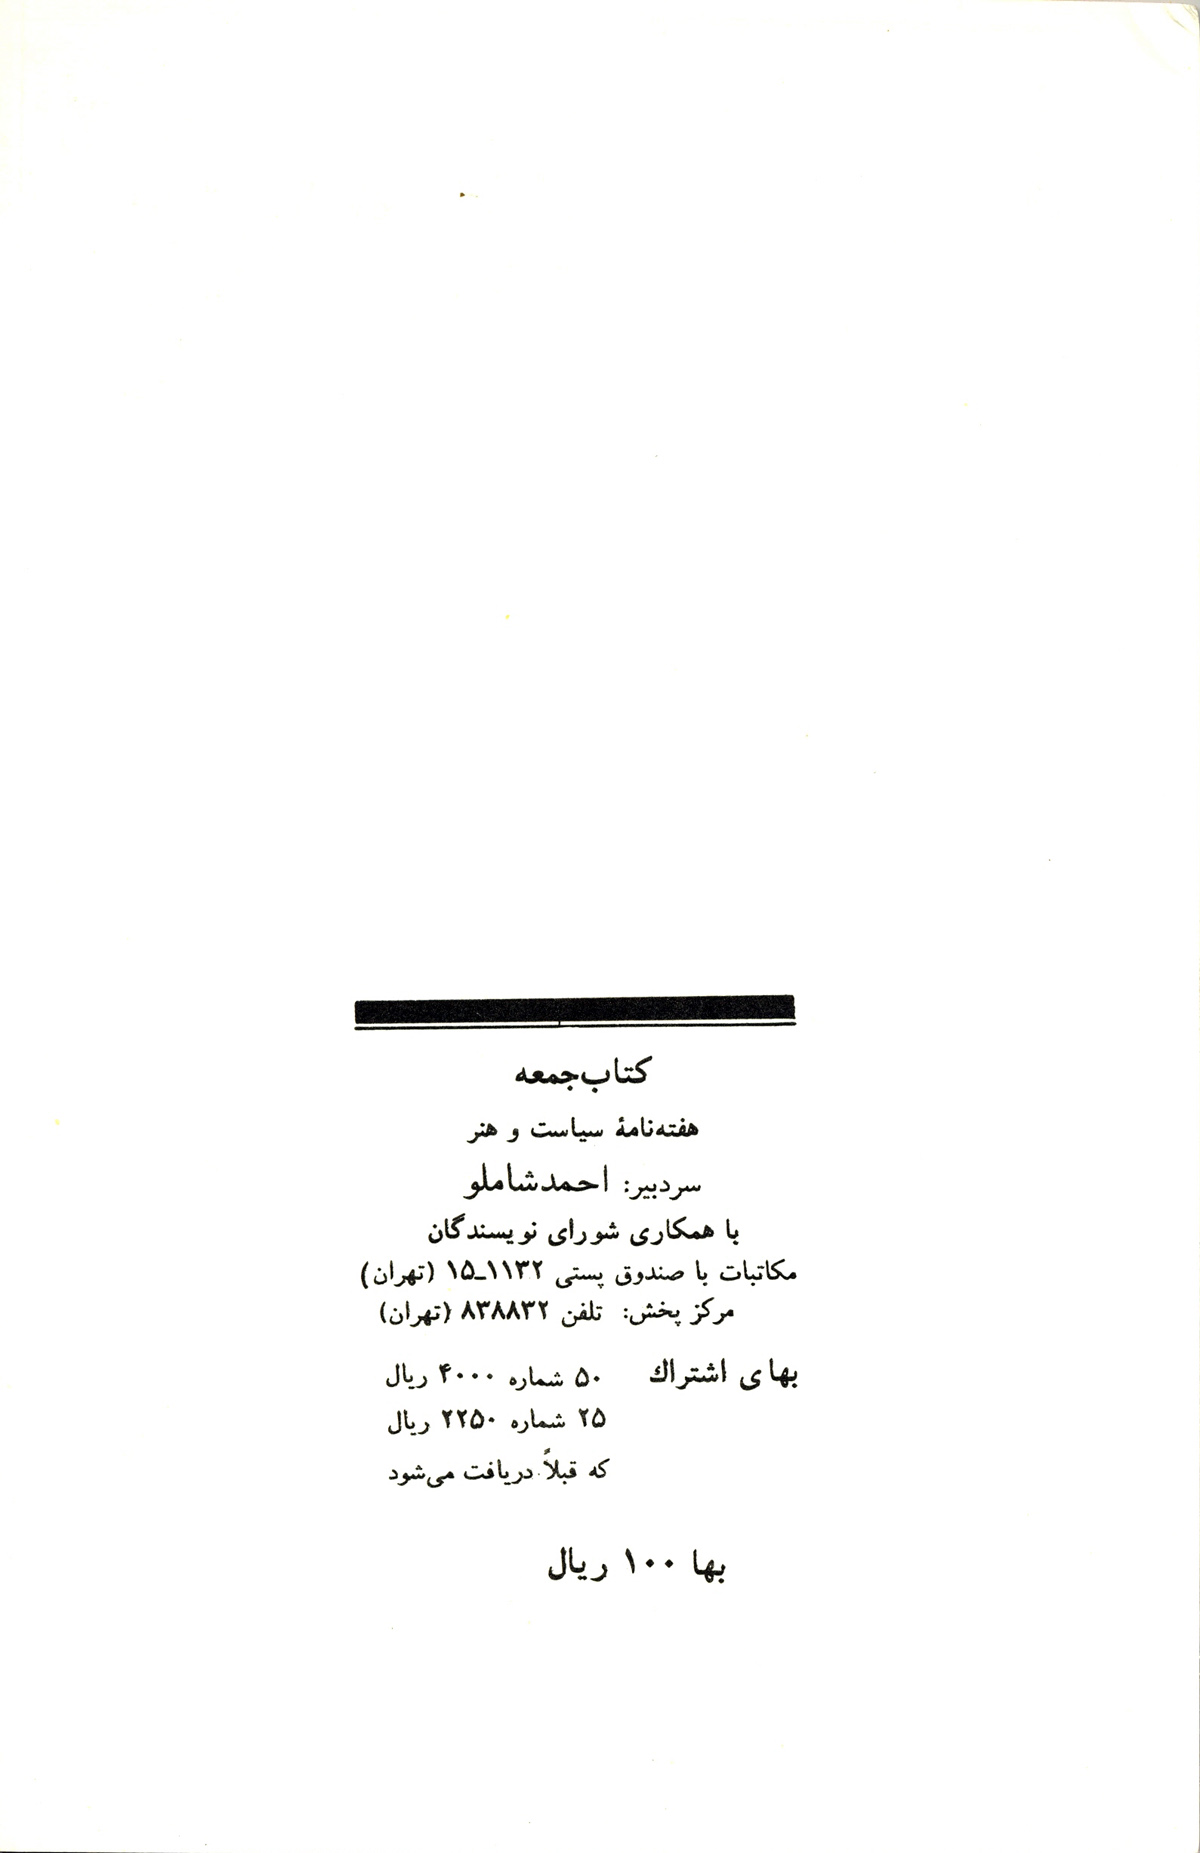 کتاب‌جمعه
هفته‌نامهٔ سیاست و هنر
سردبیر: احمدشاملو
با همکاری شورای نویسندگان
مکاتبات با صندوق پستی ۱۱۳۲ـ۱۵ (تهران)
مرکز پخش: تلفن ۸۳۸۸۳۲ (تهران)
بهای اشتراك ۵۰ شماره ۴۰۰۰ ریال
۲۵ شماره ۲۲۵۰ ریال
که قبلاً دریافت می‌شود
بها ۱۰۰ ریال